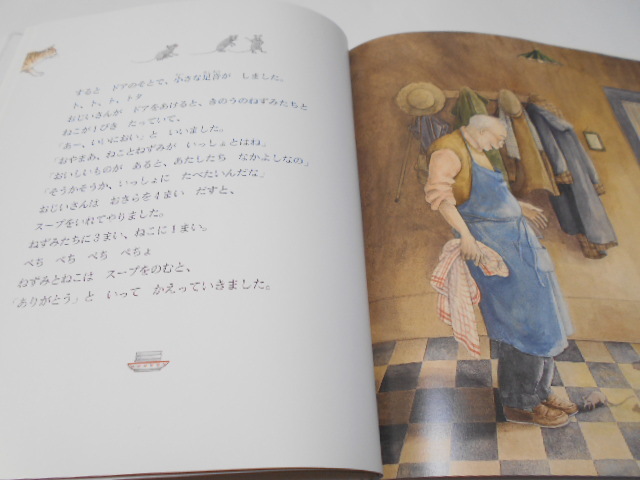 すると　ドアのそとで、小さな足音が　しました。
ト、ト、ト、トタ
おじいさんが　ドアをあけると、きのうのねずみたちと
ねこが１ぴき　たっていて、
「あ〜、いいにおい」と　いいました。
「おやまあ、ねことねずみが　いっしょとはね」
「おいしいものが　あると、あたしたち　なかよしなの」
「そうかそうか、いっしょに　たべたいんだな」
おじいさんは　おさらを４まい　だすと、
スープをいれてやりました。
ねずみたちに３まい、ねこに１まい。
ぺち　ぺち　ぺち　ぺちょ
ねずみとねこは　スープをのむと、
「ありがとう」と　いって　かえっていきました。